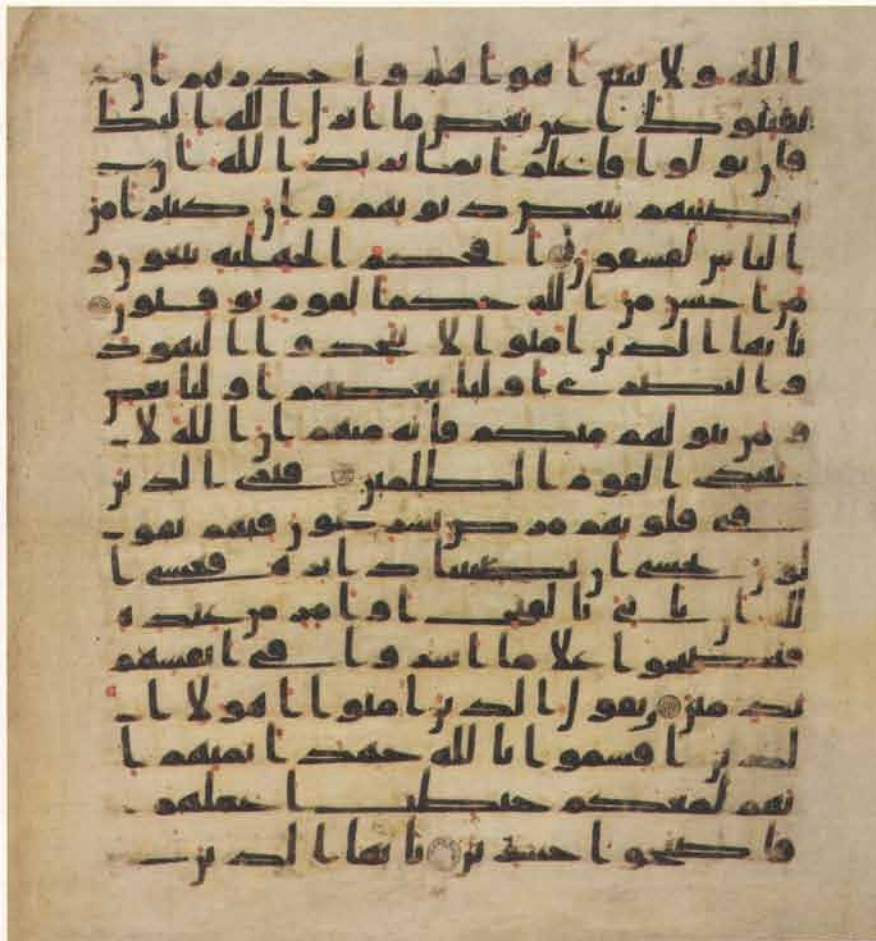 الله ولا تتبع اهواهم واحذرهم ان
يفتنوك عن بعض ما انزل الله اليك
فان تولوا فاعلم انما يريد الله ان
يصيبهم ببعض ذنوبهم وان كثيرا من
الناس لفسقون افحكم الجهلية يبغون و
من احسن من الله حكما لقوم يوقنون
يايها الذين امنوا لا تتخذوا اليهود
والنصرى اوليا بعضهم اوليا بعض
ومن يتولهم منكم فانه منهم ان الله لا
يهدي القوم الظلمين فترى الذين
في قلوبهم مرض يسرعون فيهم يقو
لون نخشى ان تصيبنا دايرة فعسى ا
لله ان ياتي بالفتح او امر من عنده
فيصبحوا علا ما اسروا في انفسهم
ندمين يقول الذين امنوا اهولا ا
لذين اقسموا بالله جهد ايمنهم ا
نهم لمعكم حبطت اعملهم
فاصبحوا خسرين يايها الذين